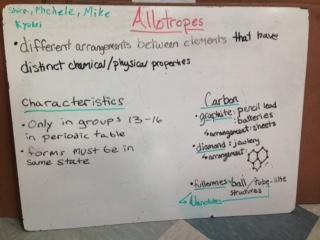 Shane, Michele, Mike
Kyubi
Allotropes
• different arrangements between elements that have
distinct chemical/physical properties
Characteristics
• Only in groups 13-16
in periodic table
• forms must be in
same state
Carbon
• graphite: pencil lead
: batteries
↳ arrangement: sheets
• diamond: jewlery
↳ arrangement:
• fullerenes - ball / tube-like
structures
↳ Nanotubes